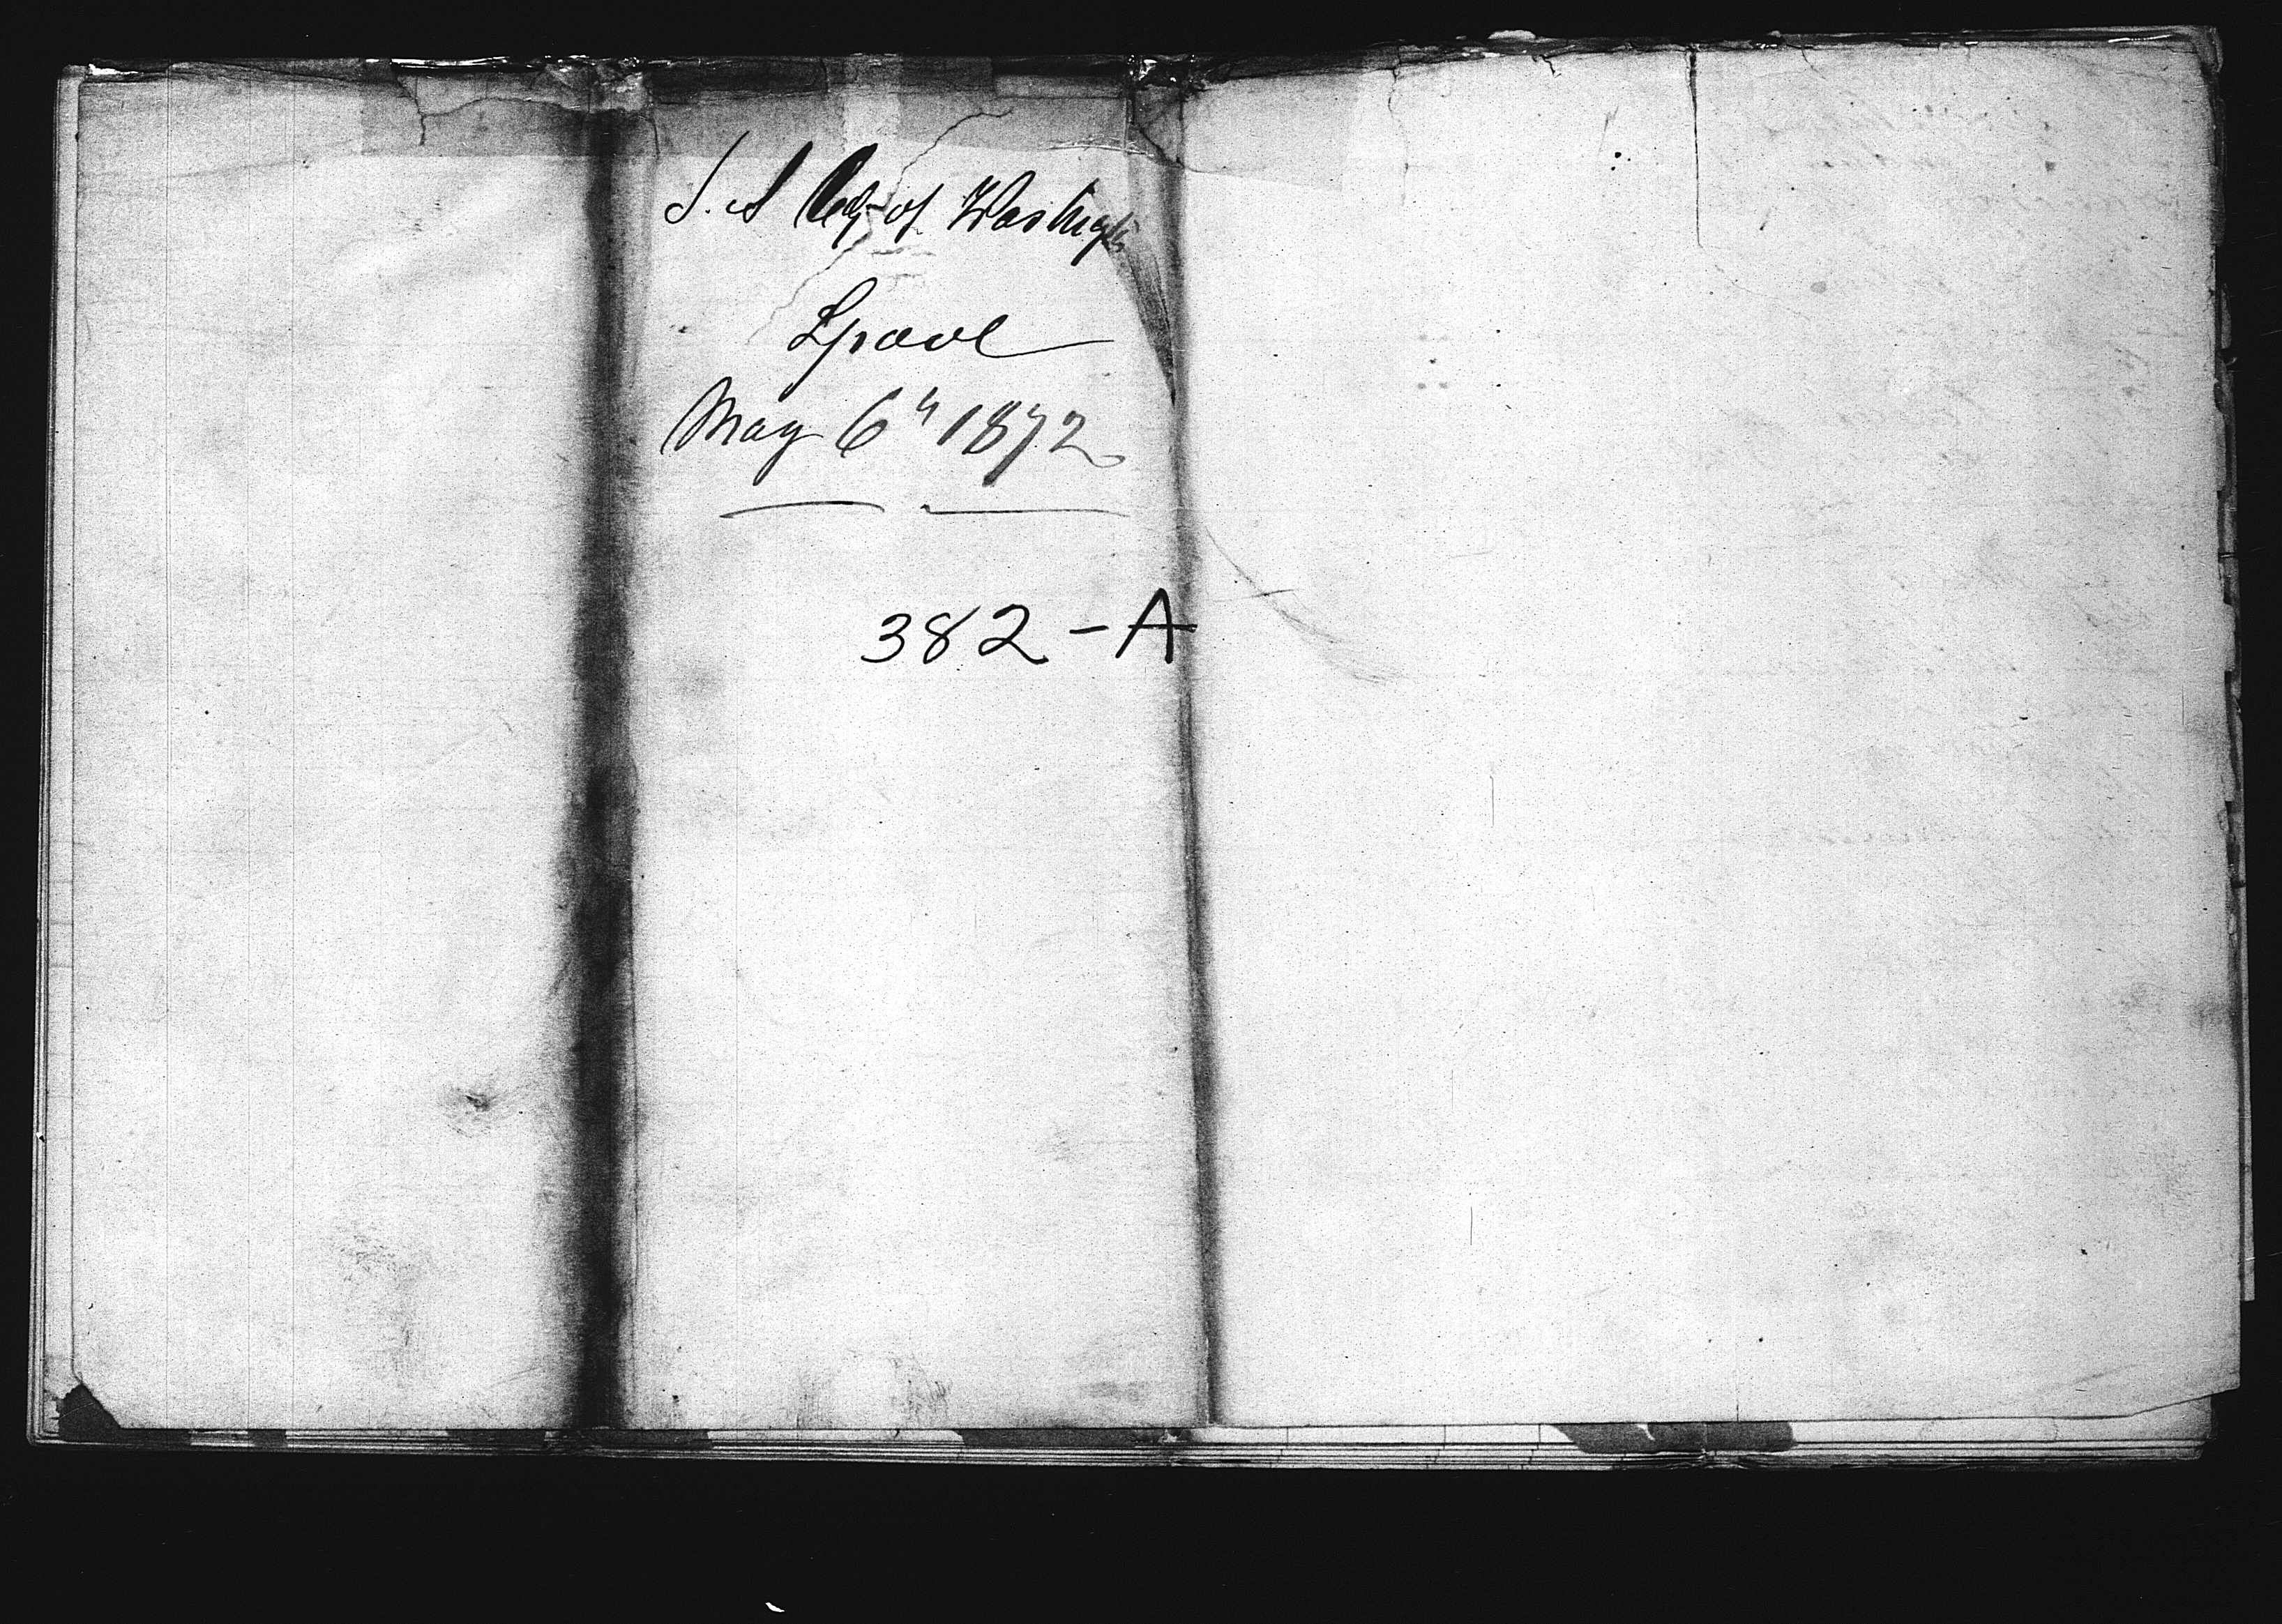 S.S City of Washingt
Lpool
May 6th 1872
382-A